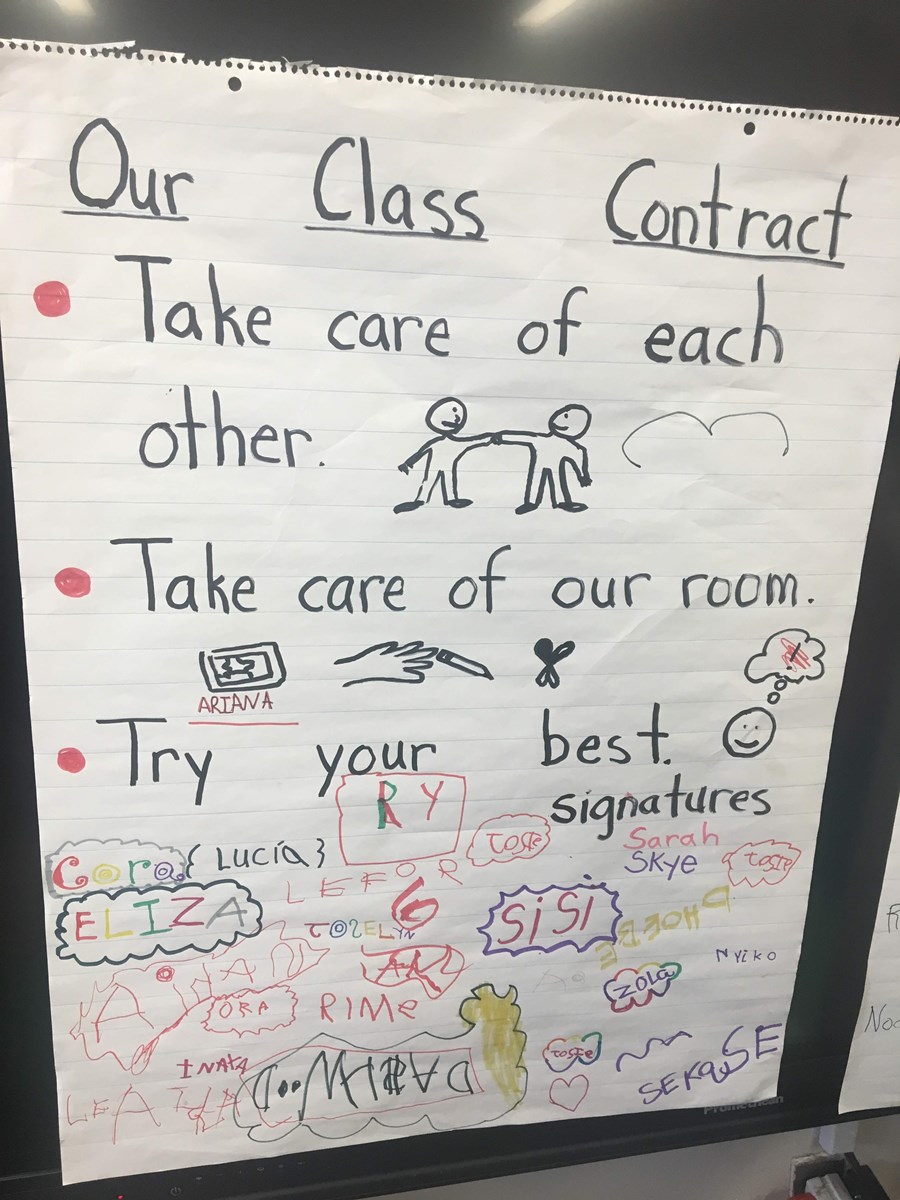 Our Class Contract
Take care of each
other.
Take care of our room.
ARIANA
Try your best.
signatures
RY
Cora
{LUCÍA}
TOSIE
Sarah
SKye
TOSIE
LEFOR
ELIZA
JOZELYN
SiSi
PHOEBE
NYiKO
ZOLA
ORA
RIMe
INAYA
TOSIE
SEKOUSE
LEA
Promethean